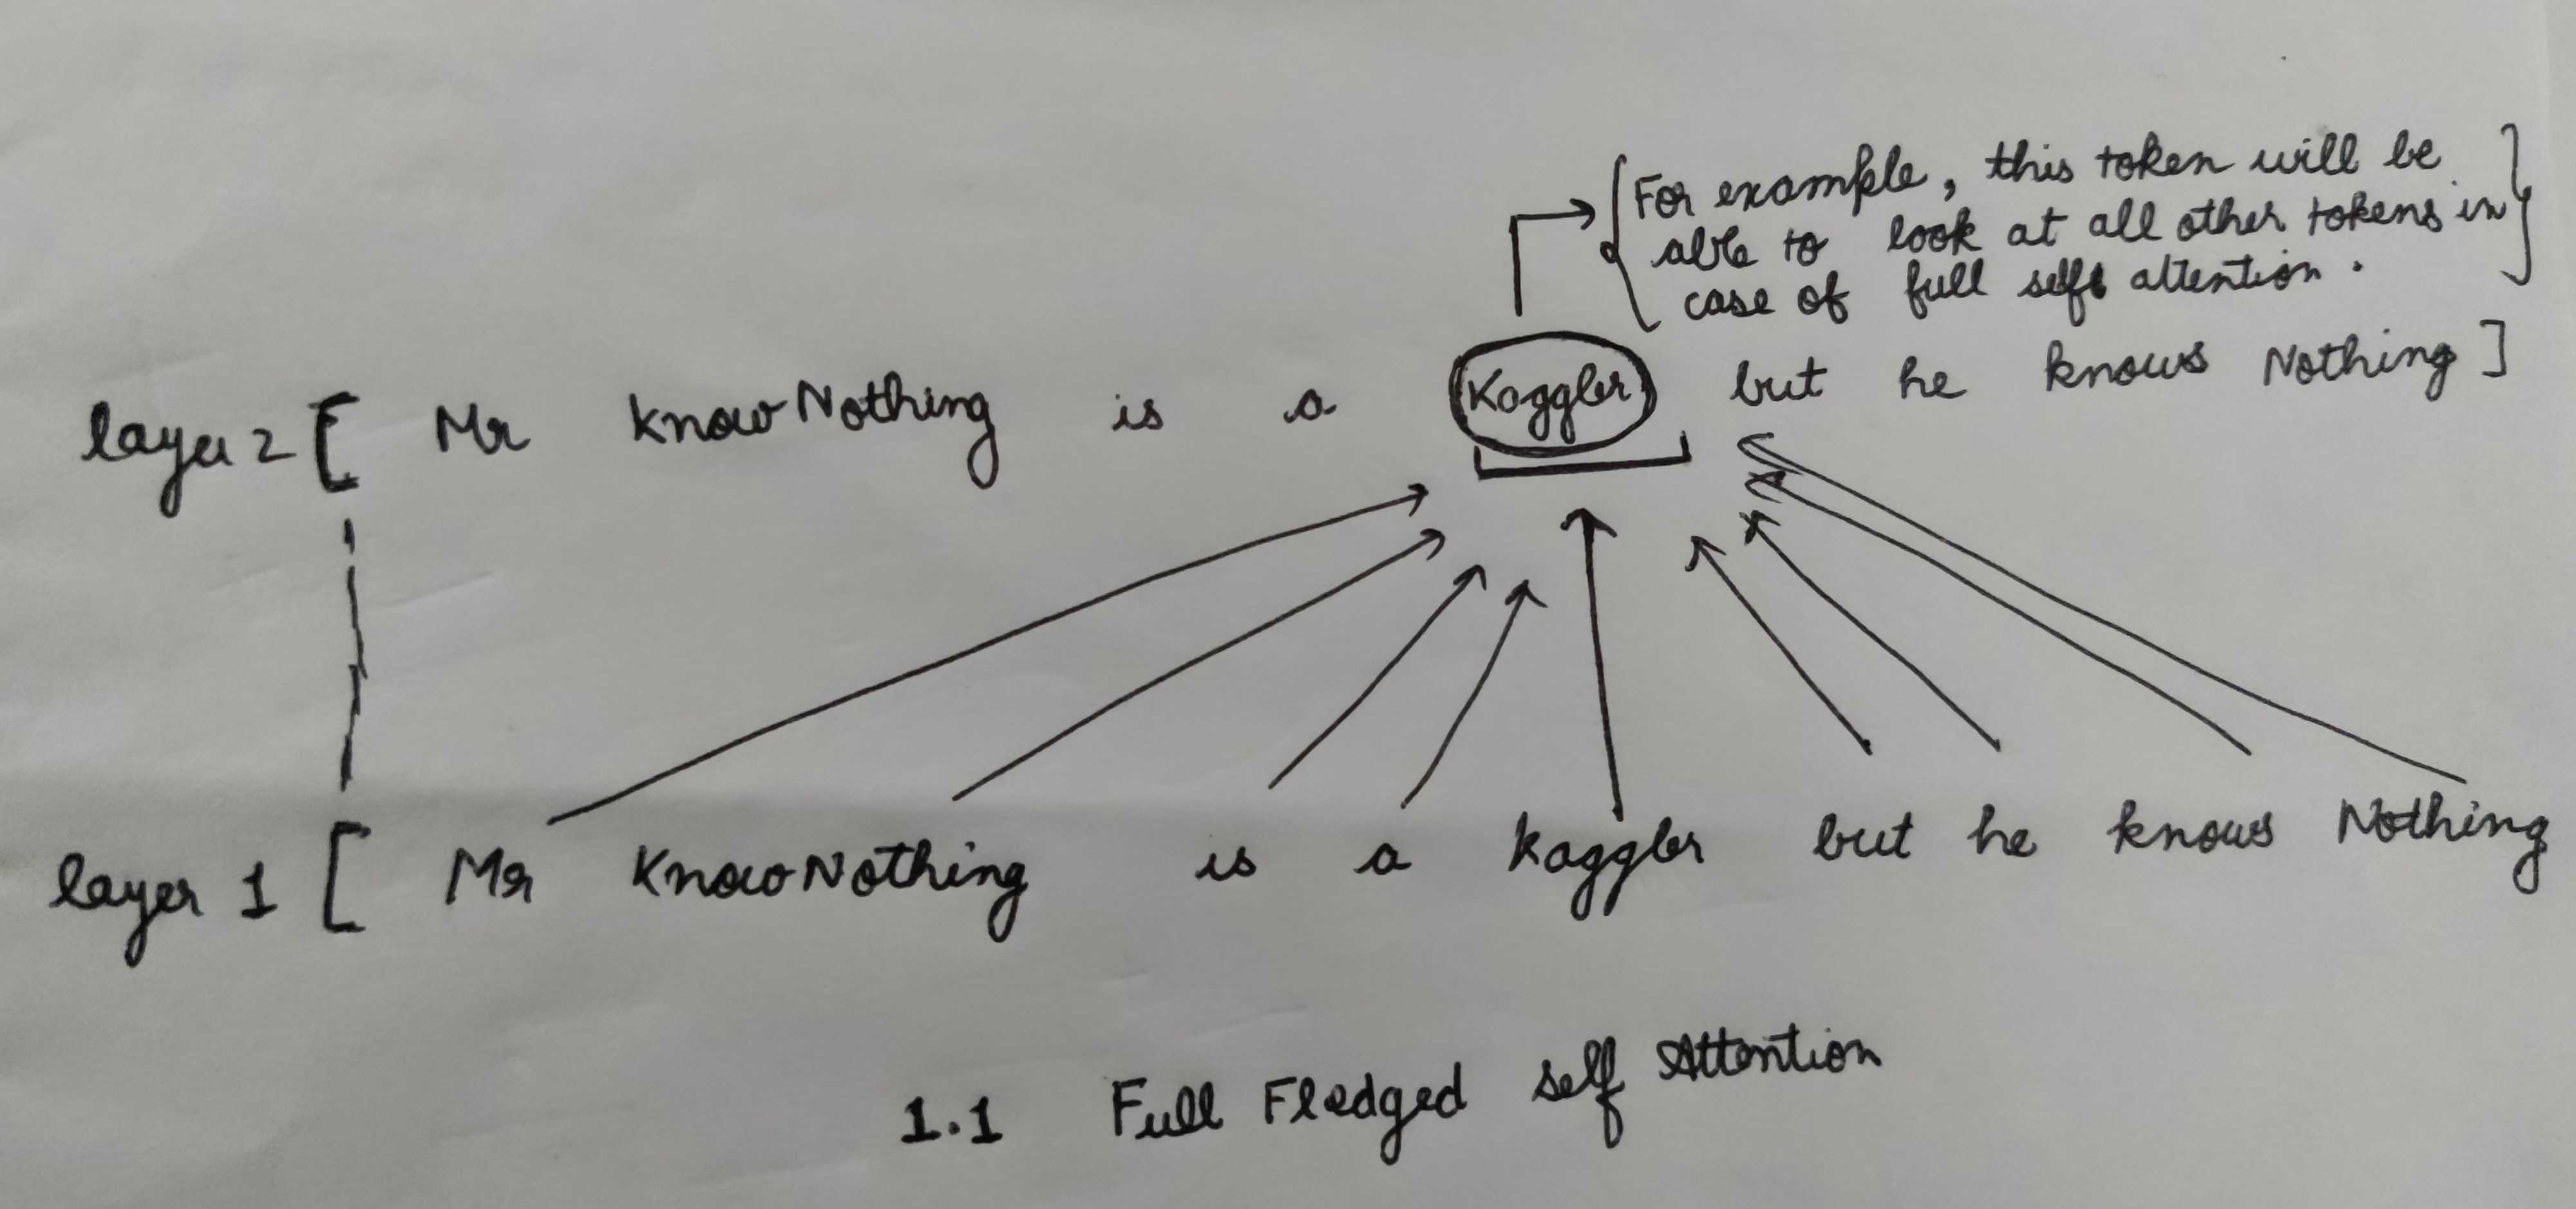 {For example, this token will be
able to look at all other tokens in}
case of full self attention.
layer 2 [ Mr KnowNothing is a Kaggler but he knows Nothing ]
layer 1 [ Mr KnowNothing is a Kaggler but he knows Nothing
1.1 Full Fledged self Attention